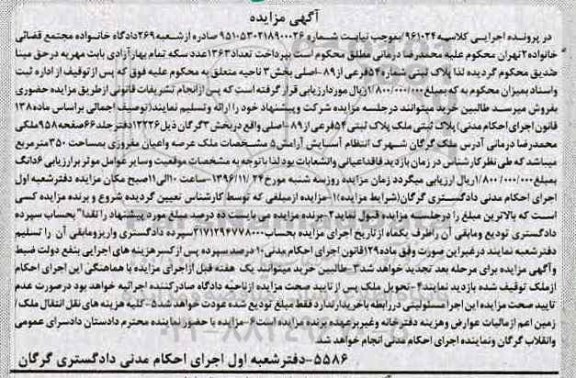 آگهی مزایده
در پرونده اجرایی کلاسه ۹۶۱۰۲۴ بموجب نیابت شماره ۹۵۱۰۵۳۰۲۱۸۹۰۰۰۲۶ صادره از شعبه ۲۶۹ دادگاه خانواده مجتمع قضائی
خانواده ۲ تهران محکوم علیه محمدرضا درمانی مطلق محکوم است بپرداخت تعداد ۱۳۶۳ عدد سکه تمام بهار آزادی بابت مهریه در حق مینا
صدیق محکوم گردیده لذا پلاک ثبتی شماره ۵۴ فرعی از ۸۹- اصلی بخش ۳ ناحیه متعلق به محکوم علیه فوق که پس از توقیف از اداره ثبت
واسناد بمیزان محکوم به که بمبلغ ۱/۸۰۰/۰۰۰/۰۰۰ ریال مورد ارزیابی قرار گرفته است که پس از انجام تشریفات قانونی از طریق مزایده حضوری
بفروش میرسد. طالبین خرید میتوانند در جلسه مزایده شرکت و پیشنهاد خود را ارائه و تسلیم نمایند (توصیف اجمالی براساس ماده ۱۳۸
قانون اجرای احکام مدنی) پلاک ثبتی ملک پلاک ثبتی ۵۴ فرعی از ۸۹- اصلی واقع در بخش ۳ گرگان ذیل ۱۳۲۲۶ دفتر جلد ۶۶ صفحه ۹۵۸ ملکی
محمدرضا درمانی آدرس ملک گرگان شهرک انتظام آسایش آرامش ۵ مشخصات ملک عرصه واعیان مفروزی بمساحت ۳۵۰ مترمربع
میباشد که طی نظر کارشناس در زمان بازدید فاقد اعیانی وانشعابات بود لذا با توجه به مشخصات موقعیت وسایر عوامل موثر بر ارزیابی ۶ دانگ
بمبلغ ۱/۸۰۰/۰۰۰/۰۰۰ ریال ارزیابی میگردد زمان مزایده روز سه شنبه مورخ ۱۳۹۶/۱۱/۲۴- ساعت ۱۰ الی ۱۱ صبح مکان مزایده دفتر شعبه اول
اجرای احکام مدنی دادگستری گرگان (شرایط مزایده) ۱- مزایده از مبلغی که توسط کارشناس تعیین گردیده شروع و برنده مزایده کسی
است که بالاترین مبلغ را در جلسه مزایده قبول نماید ۲- برنده مزایده می بایست ده درصد مبلغ مورد پیشنهاد را نقدا" بحساب سپرده
دادگستری تودیع ومابقی آن را ظرف یکماه از تاریخ اجرای مزایده بحساب ۲۱۷۱۲۹۴۷۷۸۰۰۰ سپرده دادگستری واریز ومابقی آن را تسلیم
دفتر شعبه نمایند درغیر این صورت وفق ماده ۱۲۹ قانون اجرای احکام مدنی ۱۰ درصد سپرده پس از کسر هزینه های اجرایی بنفع دولت ضبط
و آگهی مزایده برای مرحله بعد تجدید خواهد شد ۳- طالبین خرید میتوانند یک هفته قبل از اجرای مزایده با هماهنگی این اجرای احکام
از ملک توقیف شده بازدید نمایند ۴- تحویل ملک پس از تایید صحت مزایده از ناحیه دادگاه صادر کننده اجرائیه خواهد بود درصورت عدم
تایید صحت مزایده این اجرا مسئولیتی در رابطه با خریدار ندارد فقط مبلغ تودیع شده عودت خواهد شد ۵- کلیه هزینه های نقل انتقال ملک /
زمین اعم از مالیات عوارض وهزینه دفترخانه وغیر برعهده برنده مزایده است ۶- مزایده با حضور نماینده محترم دادستان دادسرای عمومی
وانقلاب گرگان ونماینده اجرای احکام مدنی انجام خواهد شد
۵۵۸۶- دفتر شعبه اول اجرای احکام مدنی دادگستری گرگان